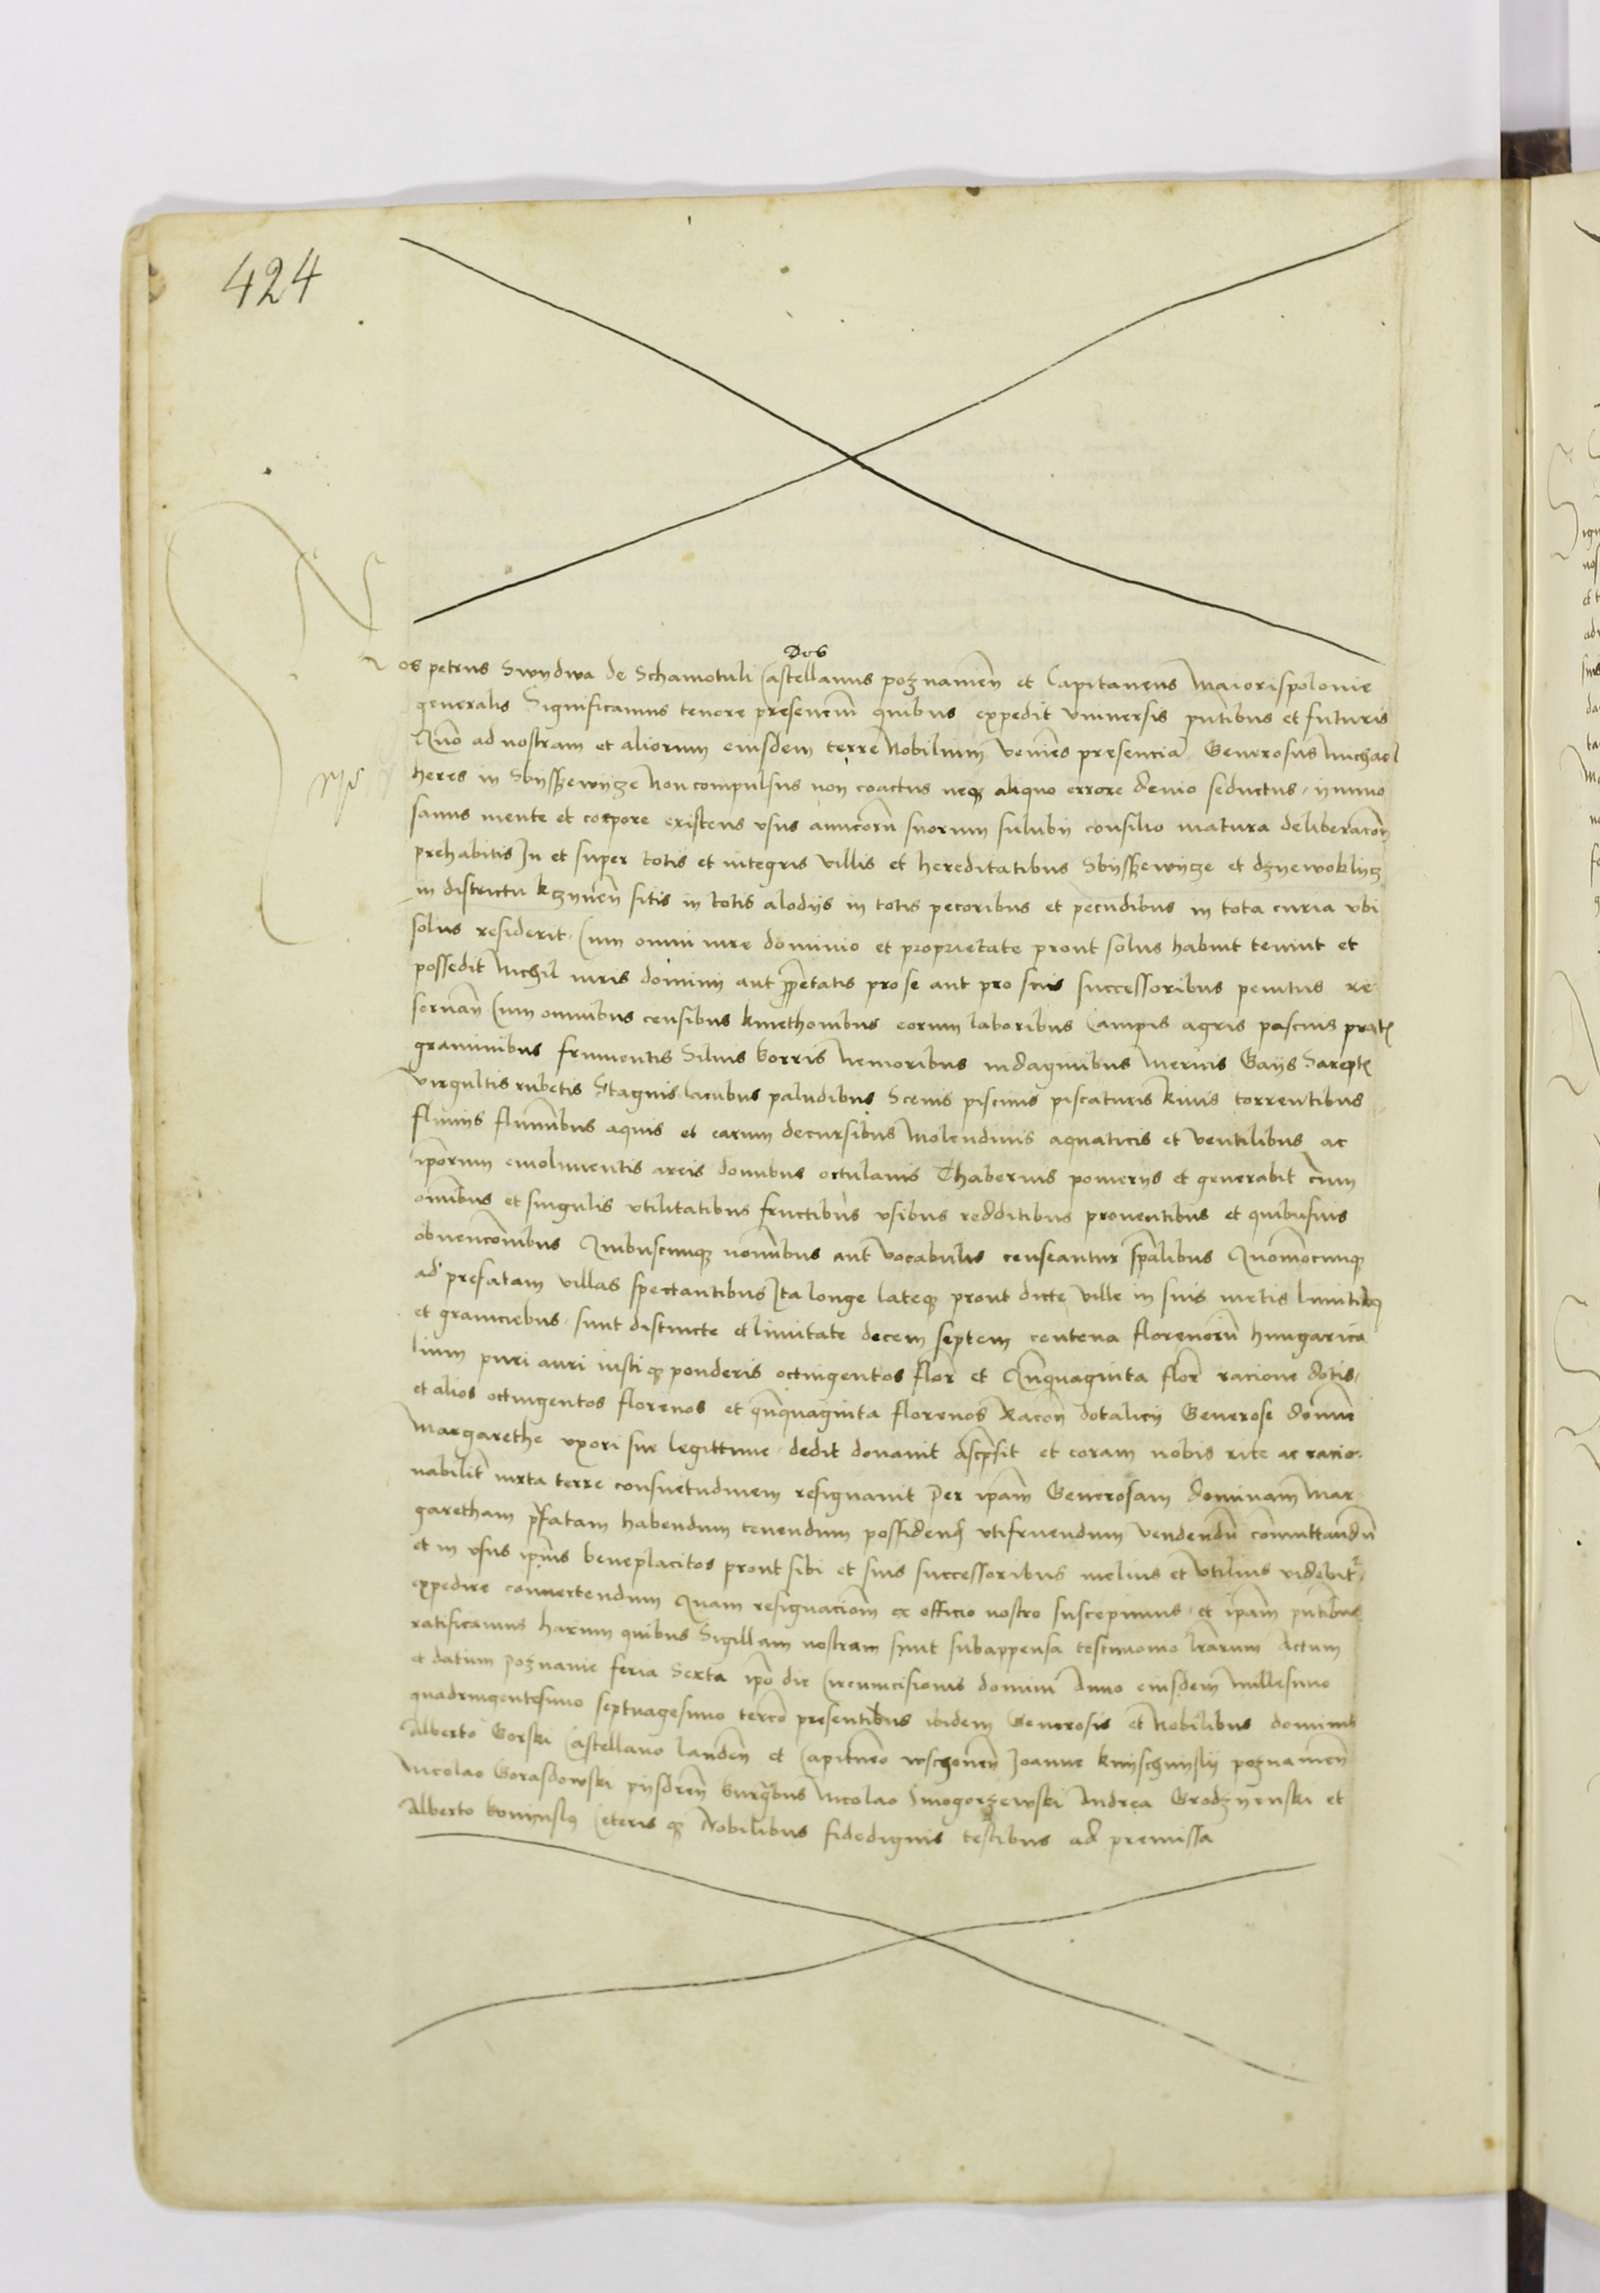 424
Dos
Nos petrus Swydwa de Schamotuli Castellanus poznanień et Capitaneus Maiorispolonie
generalis Significamus tenore presencium quibus expedit vniuersis pntibus et futuris
Quo ad nostram et aliorum eiusdem terre Nobilium veniens presencia Generosus Michael
heres in Sbysszewycze Non compulsus non coactus neq aliquo errore deuio seductus ymmo
sanus mente et corpore existens vsus amicorum suorum salubri consilio matura deliberacon
prehabitis In et super totis et integris villis et hereditatibus Sbysszewycze et dzyewoklycz
in districtu kczynen sitis in totis alodijs in totis pecoribus et pecudibus in tota curia vbi
solus residerit Cum omni iure dominio et proprietate prout solus habuit tenuit et
possedit Nichil iuris dominij aut ppetatis pro se aut pro suis successoribus penitus re
seruan Cum omnibus censibus kmethonibus eorum laboribus Campis agris pascuis prat
graminibus frumentis Siluis borris Nemoribus indaginibus Mericis Gayis Sarept
virgultis rubetis Stagnis lacubus paludibus Scenis piscinis piscaturis Riuis torrentibus
fluuijs fluminibus aquis et earum decursibus Molendinis aquaticis et ventilibus ac
iporum emolimentis areis domibus ortulanis Thabernis pomerijs et generalit cum
omibus et singulis vtilitatibus fructibus vsibus redditibus prouentibus et quibusuis
obuenconibus Quibuscunq nomibus aut vocabulis censeantur spalibus Quomocunq
ad prefatam villas spectantibus Ita longe lateq prout dicte ville in suis metis limitibq
et graniciebus sunt distincte et limitate decem septem centena florenorum hungarica
lium puri auri iusti q ponderis octingentos flor et Quinquaginta flor racione dotis
et alios octingentos florenos et quinquaginta florenos Racon dotalicij Generose domine
Margarethe vxori sue legittime dedit donauit ascpsit et coram nobis rite ac racio
nabilit iuxta terre consuetudinem resignauit Per ipam Generosam dominam Mar
garetham pfatam habendum tenendum possidend vtifruendum vendendu commuttandu
et in vsus ipius beneplacitos prout sibi et suis successoribus melius et vtilius videbit
expedire conuertendum Quam resignaciom ex officio nostro suscepimus et ipam pntibus
ratificamus harum quibus Sigillam nostram sunt subappensa testimonio lrarum Actum
et datum Poznanie feria Sexta ipo die Circumcisionis domini Anno eiusdem Millesimo
quadringentesimo septuagesimo tercio presentibus ibidem Generosis et Nobilibus dominis
Alberto Gorski Castellano landen et Capitneo wschouen Joanne poznanien
Nicolao Gorasdowski pysdren burgbus Nicolao Smogorzewski Andrea Grodzyenski et
Alberto Ceteris q Nobilibus fidedignis testibus ad premissa